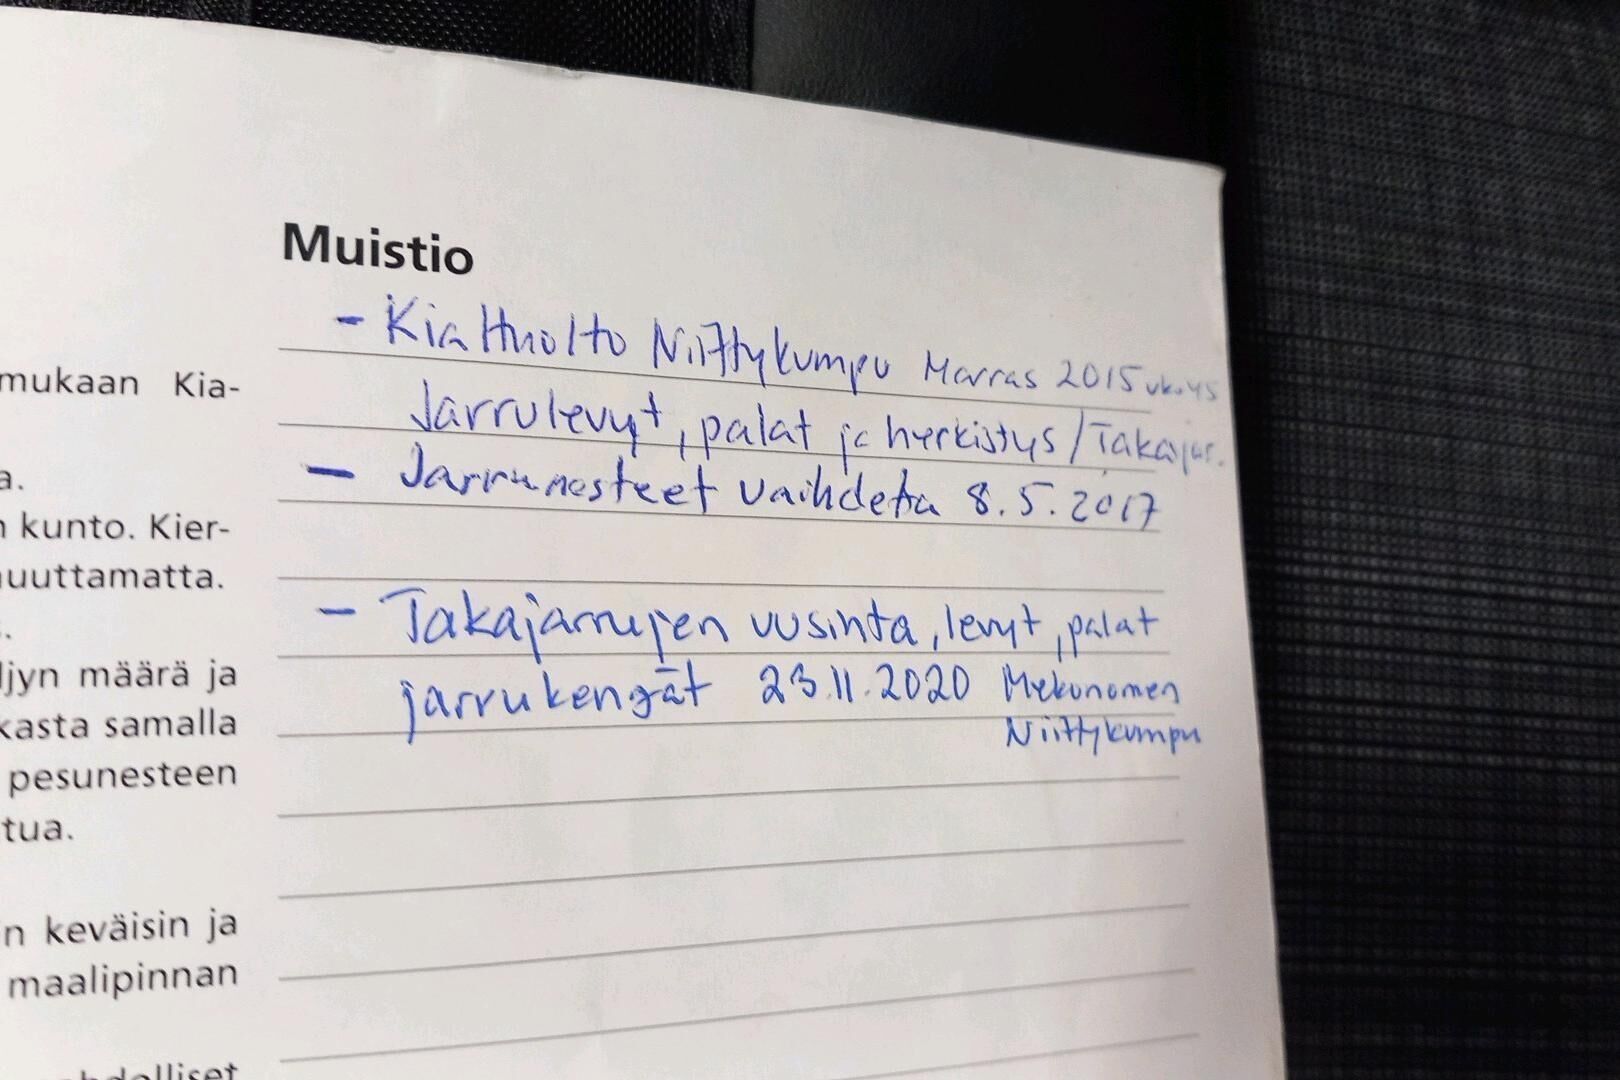 mukaan Kia-
a.
n kunto. Kier-
uuttamatta.
ljyn määrä ja
kasta samalla
pesunesteen
tua.
n keväisin ja
maalipinnan
hdolliset
Muistio
- Kia Huolto Niittykumpu Marras 2015
Jarrulevyt, palat ja herkistys / Takajar.
- Jarrunesteet vaihdettu 8.5.2017
- Takajarrujen uusinta, levyt, palat
jarrukengät 23.11.2020 Mekonomen
Niittykumpu